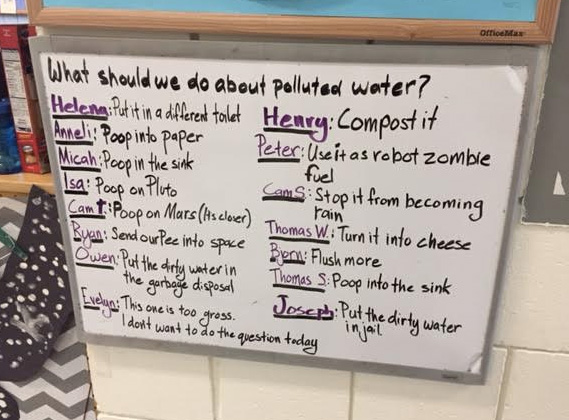 OfficeMax
What should we do about polluted water?
Helena: Put it in a different toilet
Anneli: Poop into paper
Micah: Poop in the sink
Isa: Poop on Pluto
Cam T.: Poop on Mars (Its closer)
Ryan: Send our Pee into space
Owen: Put the dirty water in
the garbage disposal
Evelyn: This one is too gross.
I dont want to do the question today
Henry: Compost it
Peter: Use it as robot zombie
fuel
Cam S: Stop it from becoming
rain
Thomas W.: Turn it into cheese
Bjorn: Flush more
Thomas S: Poop into the sink
Joseph: Put the dirty water
in jail